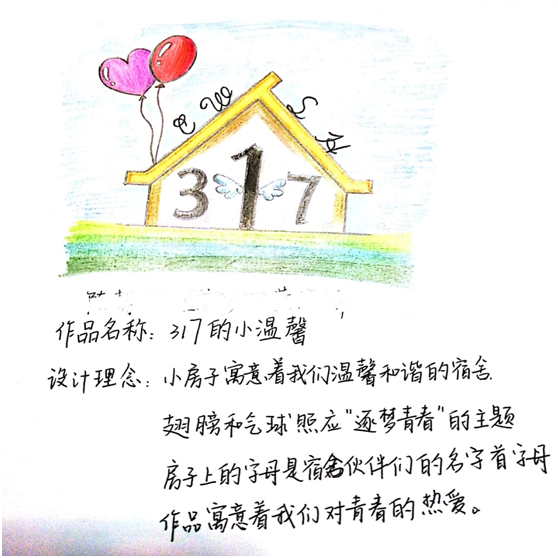 317
作品名称：317的小温馨
设计理念：小房子寓意着我们温馨和谐的宿舍
翅膀和气球照应“逐梦青春”的主题
房子上的字母是宿舍伙伴们的名字首字母
作品寓意着我们对青春的热爱。